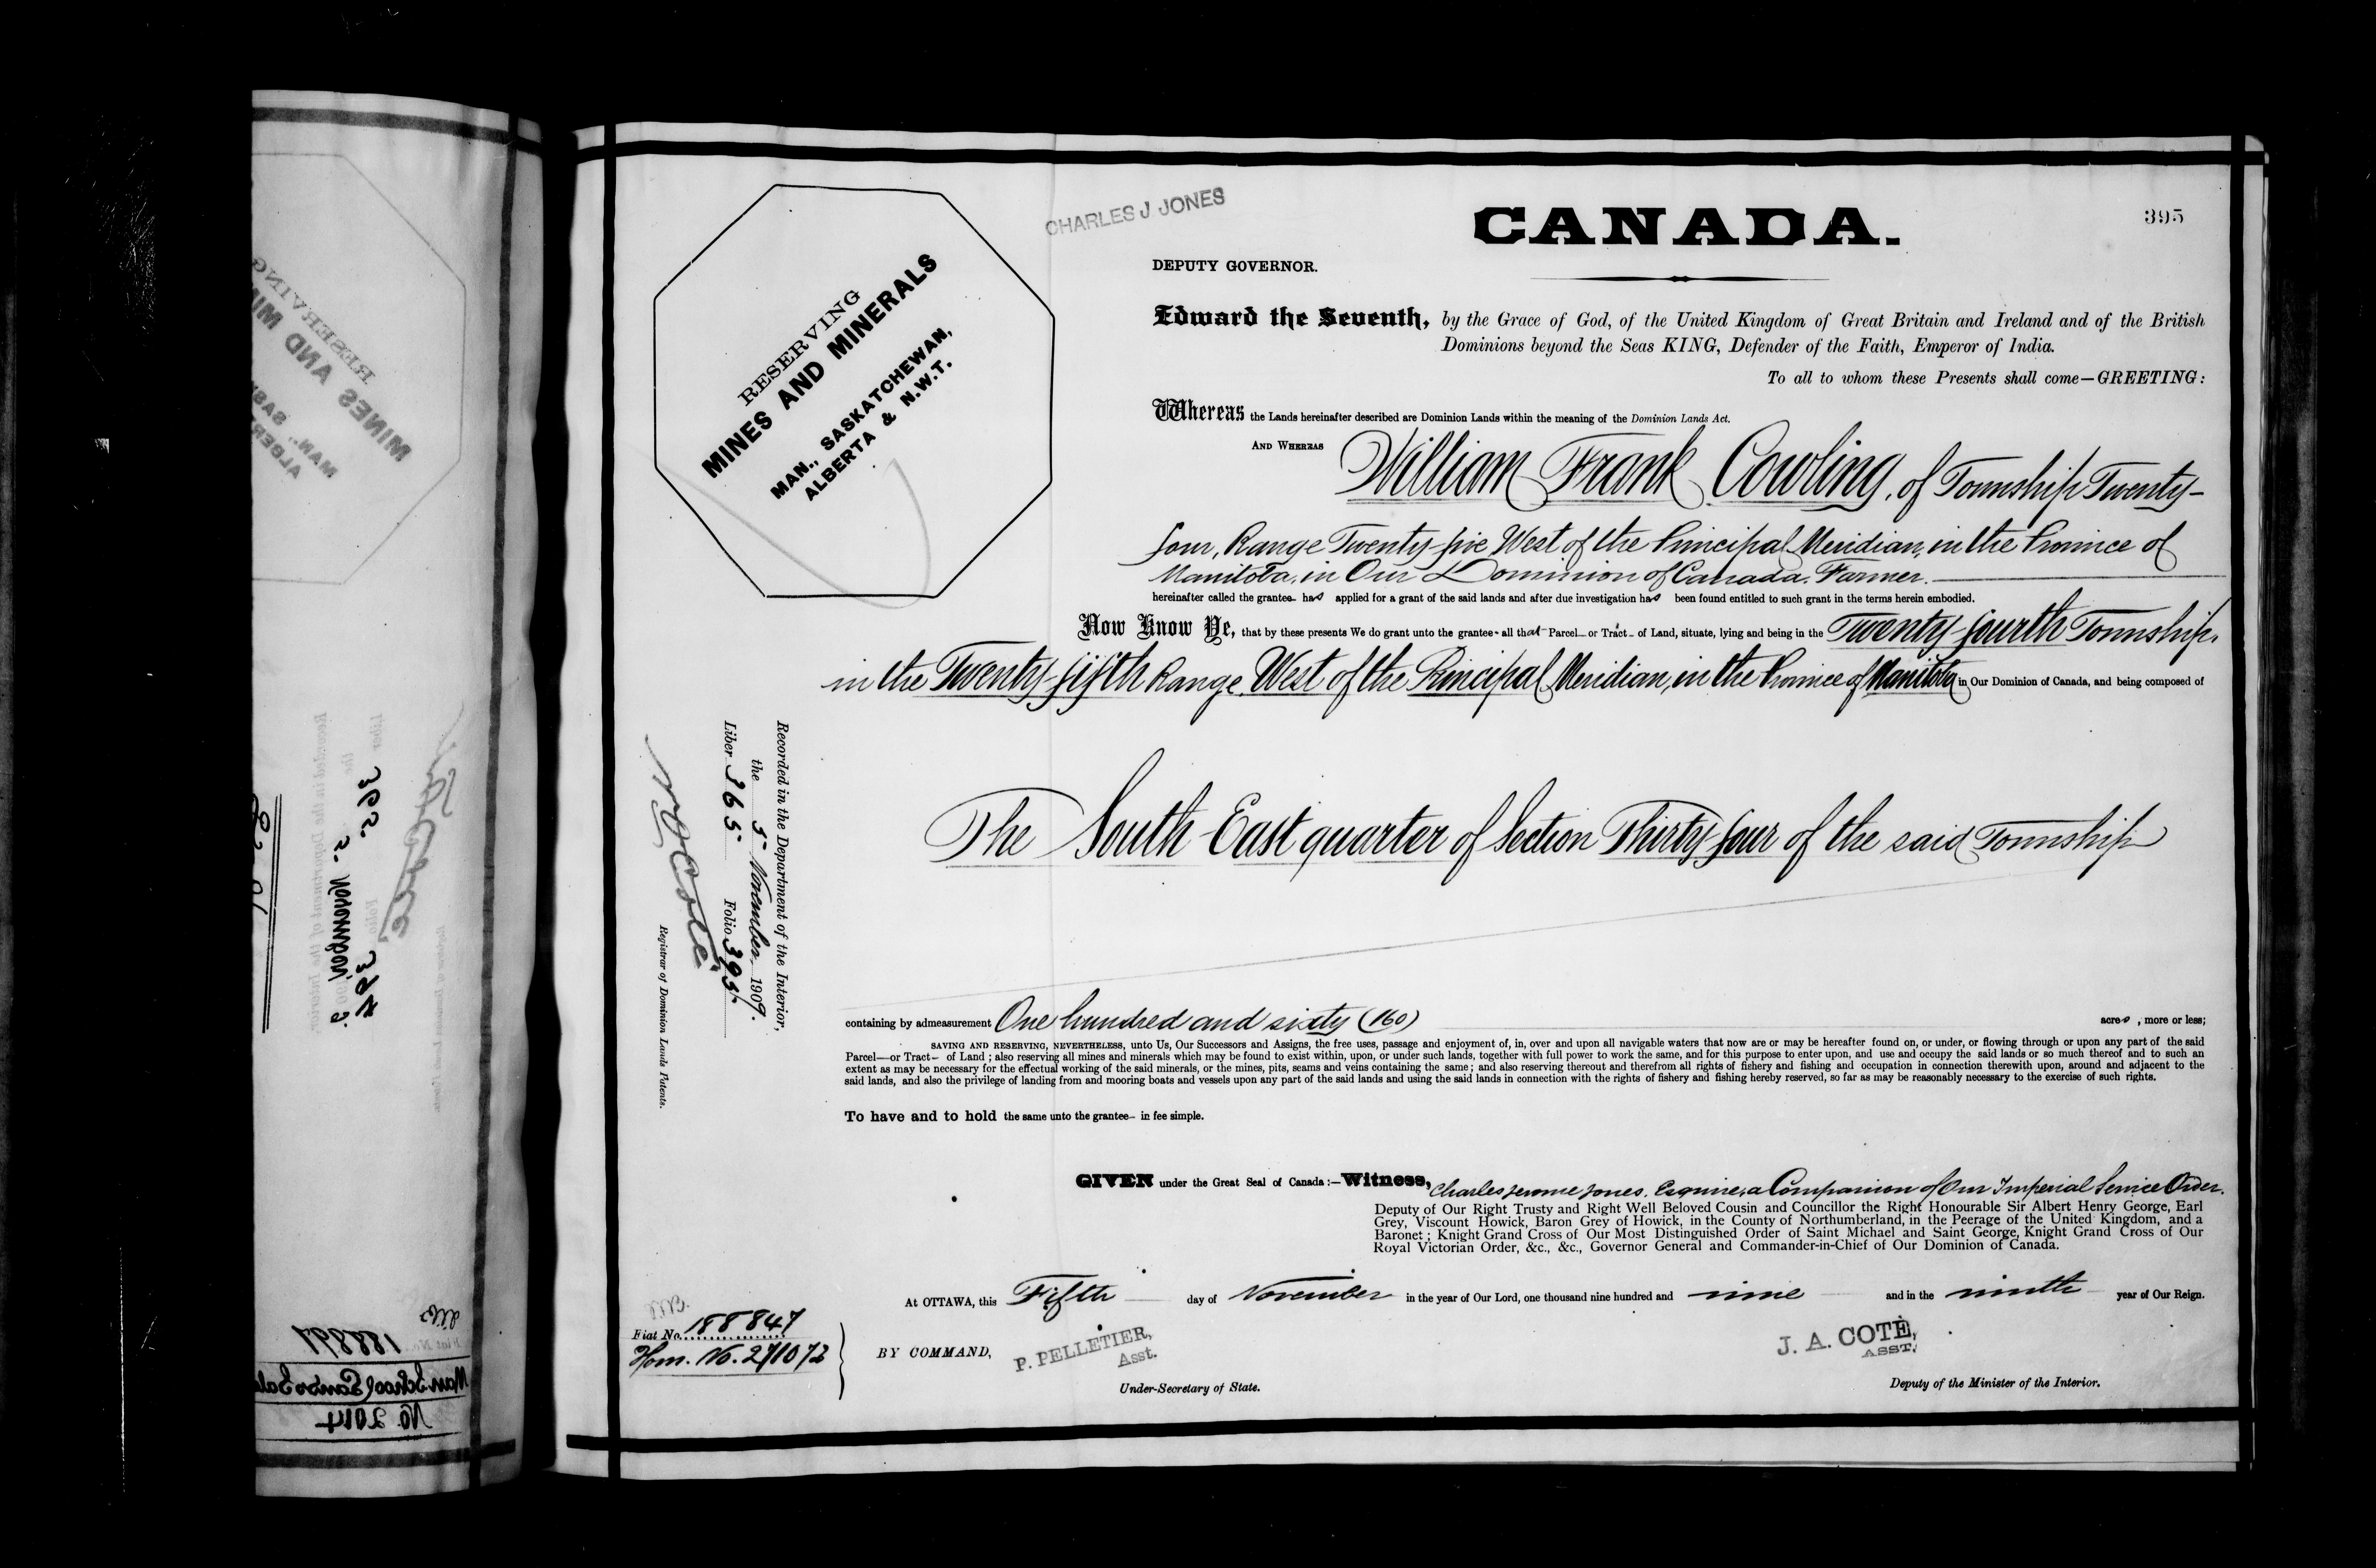 CHARLES J. JONES
CANADA.
395
DEPUTY GOVERNOR.
RESERVING
MINES AND MINERALS
MAN., SASKATCHEWAN,
ALBERTA & N.W.T.
Edward the Seventh, by the Grace of God, of the United Kingdom of Great Britain and Ireland and of the British
Dominions beyond the Seas KING, Defender of the Faith, Emperor of India.
To all to whom these Presents shall come—GREETING:
Whereas the Lands hereinafter described are Dominion Lands within the meaning of the Dominion Lands Act.
AND WHEREAS William Frank Cowling, of Township Twenty-
four, Range Twenty-five West of the Principal Meridian, in the Province of
Manitoba, in Our Dominion of Canada, Farmer.
hereinafter called the grantee has applied for a grant of the said lands and after due investigation has been found entitled to such grant in the terms herein embodied.
Now Know Ye, that by these presents We do grant unto the grantee all that Parcel or Tract of Land, situate, lying and being in the Twenty-fourth Township,
in the Twenty-fifth Range West of the Principal Meridian, in the Province of Manitoba in Our Dominion of Canada, and being composed of
The South East quarter of Section Thirty four of the said Township
Recorded in the Department of the Interior,
the 5 November 1909.
Liber 365 Folio 395.
N O Coté
Registrar of Dominion Lands Patents.
containing by admeasurement One hundred and sixty (160) acres, more or less;
SAVING AND RESERVING, NEVERTHELESS, unto Us, Our Successors and Assigns, the free uses, passage and enjoyment of, in, over and upon all navigable waters that now are or may be hereafter found on, or under, or flowing through or upon any part of the said
Parcel—or Tract— of Land ; also reserving all mines and minerals which may be found to exist within, upon, or under such lands, together with full power to work the same, and for this purpose to enter upon, and use and occupy the said lands or so much thereof and to such an
extent as may be necessary for the effectual working of the said minerals, or the mines, pits, seams and veins containing the same ; and also reserving thereout and therefrom all rights of fishery and fishing and occupation in connection therewith upon, around and adjacent to the
said lands, and also the privilege of landing from and mooring boats and vessels upon any part of the said lands and using the said lands in connection with the rights of fishery and fishing hereby reserved, so far as may be reasonably necessary to the exercise of such rights.
To have and to hold the same unto the grantee— in fee simple.
GIVEN under the Great Seal of Canada :—Witness, Charles Jerome Jones, Esquire, a Companion of Our Imperial Service Order,
Deputy of Our Right Trusty and Right Well Beloved Cousin and Councillor the Right Honourable Sir Albert Henry George, Earl
Grey, Viscount Howick, Baron Grey of Howick, in the County of Northumberland, in the Peerage of the United Kingdom, and a
Baronet ; Knight Grand Cross of Our Most Distinguished Order of Saint Michael and Saint George, Knight Grand Cross of Our
Royal Victorian Order, &c., &c., Governor General and Commander-in-Chief of Our Dominion of Canada.
At OTTAWA, this Fifth day of November in the year of Our Lord, one thousand nine hundred and nine and in the ninth year of Our Reign.
Fiat No. 188847
Hom. No. 271072
BY COMMAND,
P. PELLETIER,
Asst.
Under-Secretary of State.
J. A. COTÉ,
ASST.
Deputy of the Minister of the Interior.